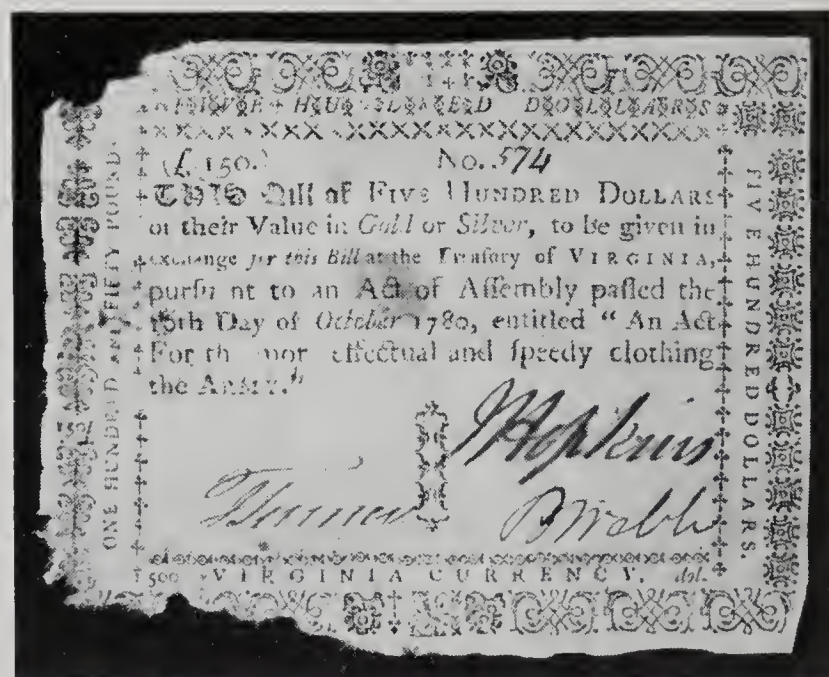 FIVE HUNDRED DOLLARS
(£. 150.) No. 574
THIS Bill of FIVE HUNDRED DOLLARS
or their Value in Gold or Silver, to be given in
exchange for this Bill at the Treaſury of VIRGINIA,
purſu nt to an Act of Aſſembly paſſed the
16th Day of October 1780, entitled “ An Act
For th mor effectual and ſpeedy clothing
the ARMY.”
JHopkins
BWebb
500 VIRGINIA CURRENCY. dol.
ONE HUNDRED AND FIFTY POUND
FIVE HUNDRED DOLLARS.